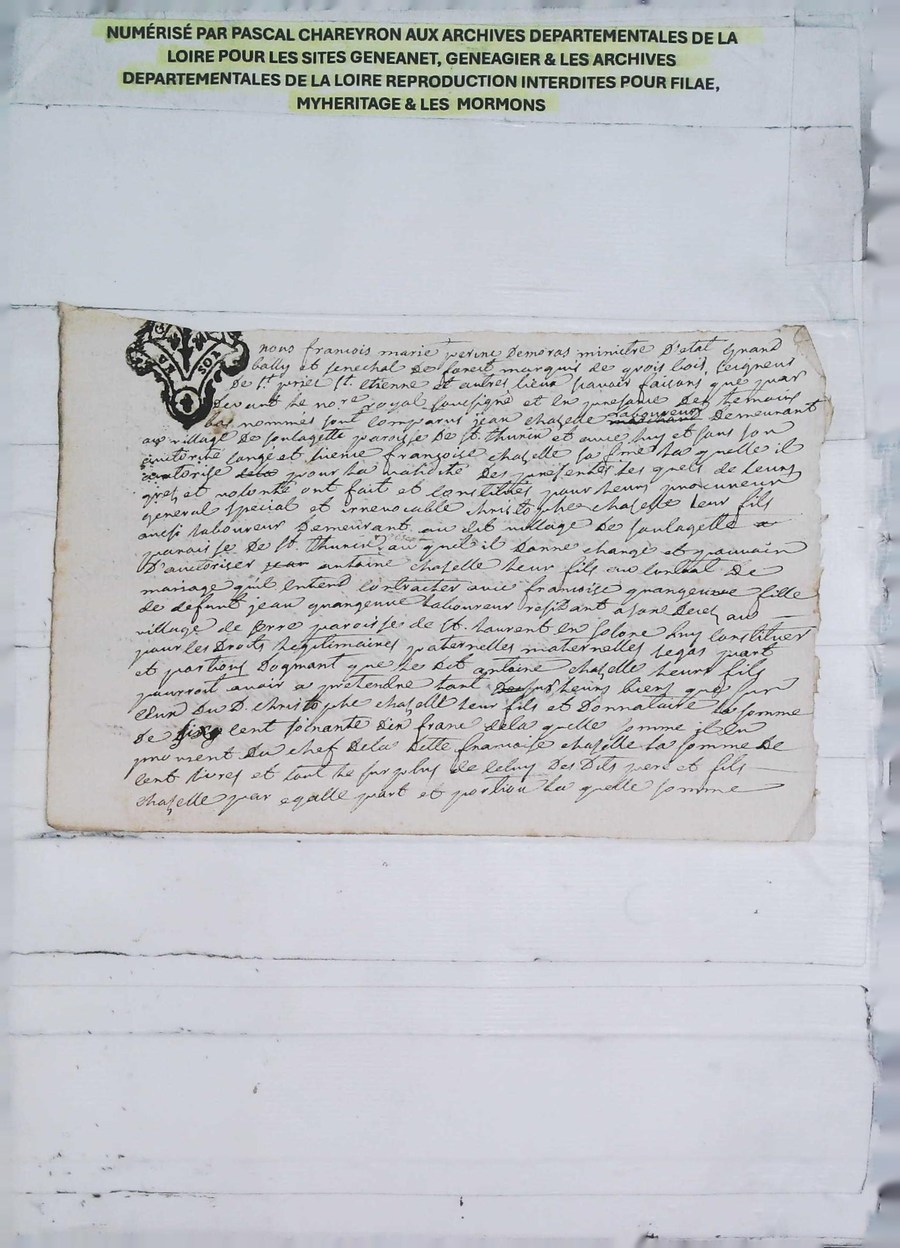 NUMÉRISÉ PAR PASCAL CHAREYRON AUX ARCHIVES DEPARTEMENTALES DE LA
LOIRE POUR LES SITES GENEANET, GENEAGIER & LES ARCHIVES
DEPARTEMENTALES DE LA LOIRE REPRODUCTION INTERDITES POUR FILAE,
MYHERITAGE & LES MORMONS
nous francois marie perine Demoras ministre D'etat Grand
bally et senechal de forest marquis de grois bois, seigneur
De st priet st. Etienne et autres lieux savoir faisons que par
devant le nore royal sousigné et en presance des temoins
bas nommes sont comparus jean chazelle laboureur Demeurant
au village De soulagette paroisse De st. thurin et avec luy et sous son
autorité françoise chazelle sa a la quelle il
autorise pour la validité Des presentes les quels de leurs
grez et volonté ont fait et constitués pour leurs procureur
general special et irrevocable christophe chazelle leur fils
aussi laboureur Demeurant au dit village De soulagette
paroisse De st. thurin au quel il donne charge et pouvoir
D'autoriser antoine chazelle leur fils au contrat De
mariage qu'il entend contracter avec francoise grangeneuve fille
de defunt jean grangeneuve laboureur residant a son decez au
village de paroisse de st. laurent en solore luy constituer
pour les Droits legitimaires paternelles maternelles legas part
et portions Dogmant que le Dit antoine chazelle leurs fils
pourroit avoir a pretendre tant sur leurs biens que sur
ceux Du D. christophe chazelle leur fils et Donnataire la somme
de cent soixante dix franc de la quelle somme il en
provient Du chef de la ditte francoise chazelle la somme De
cent livres et tout le surplus de celuy Des Dits pere et fils
chazelle par egalle part et portion la quelle somme